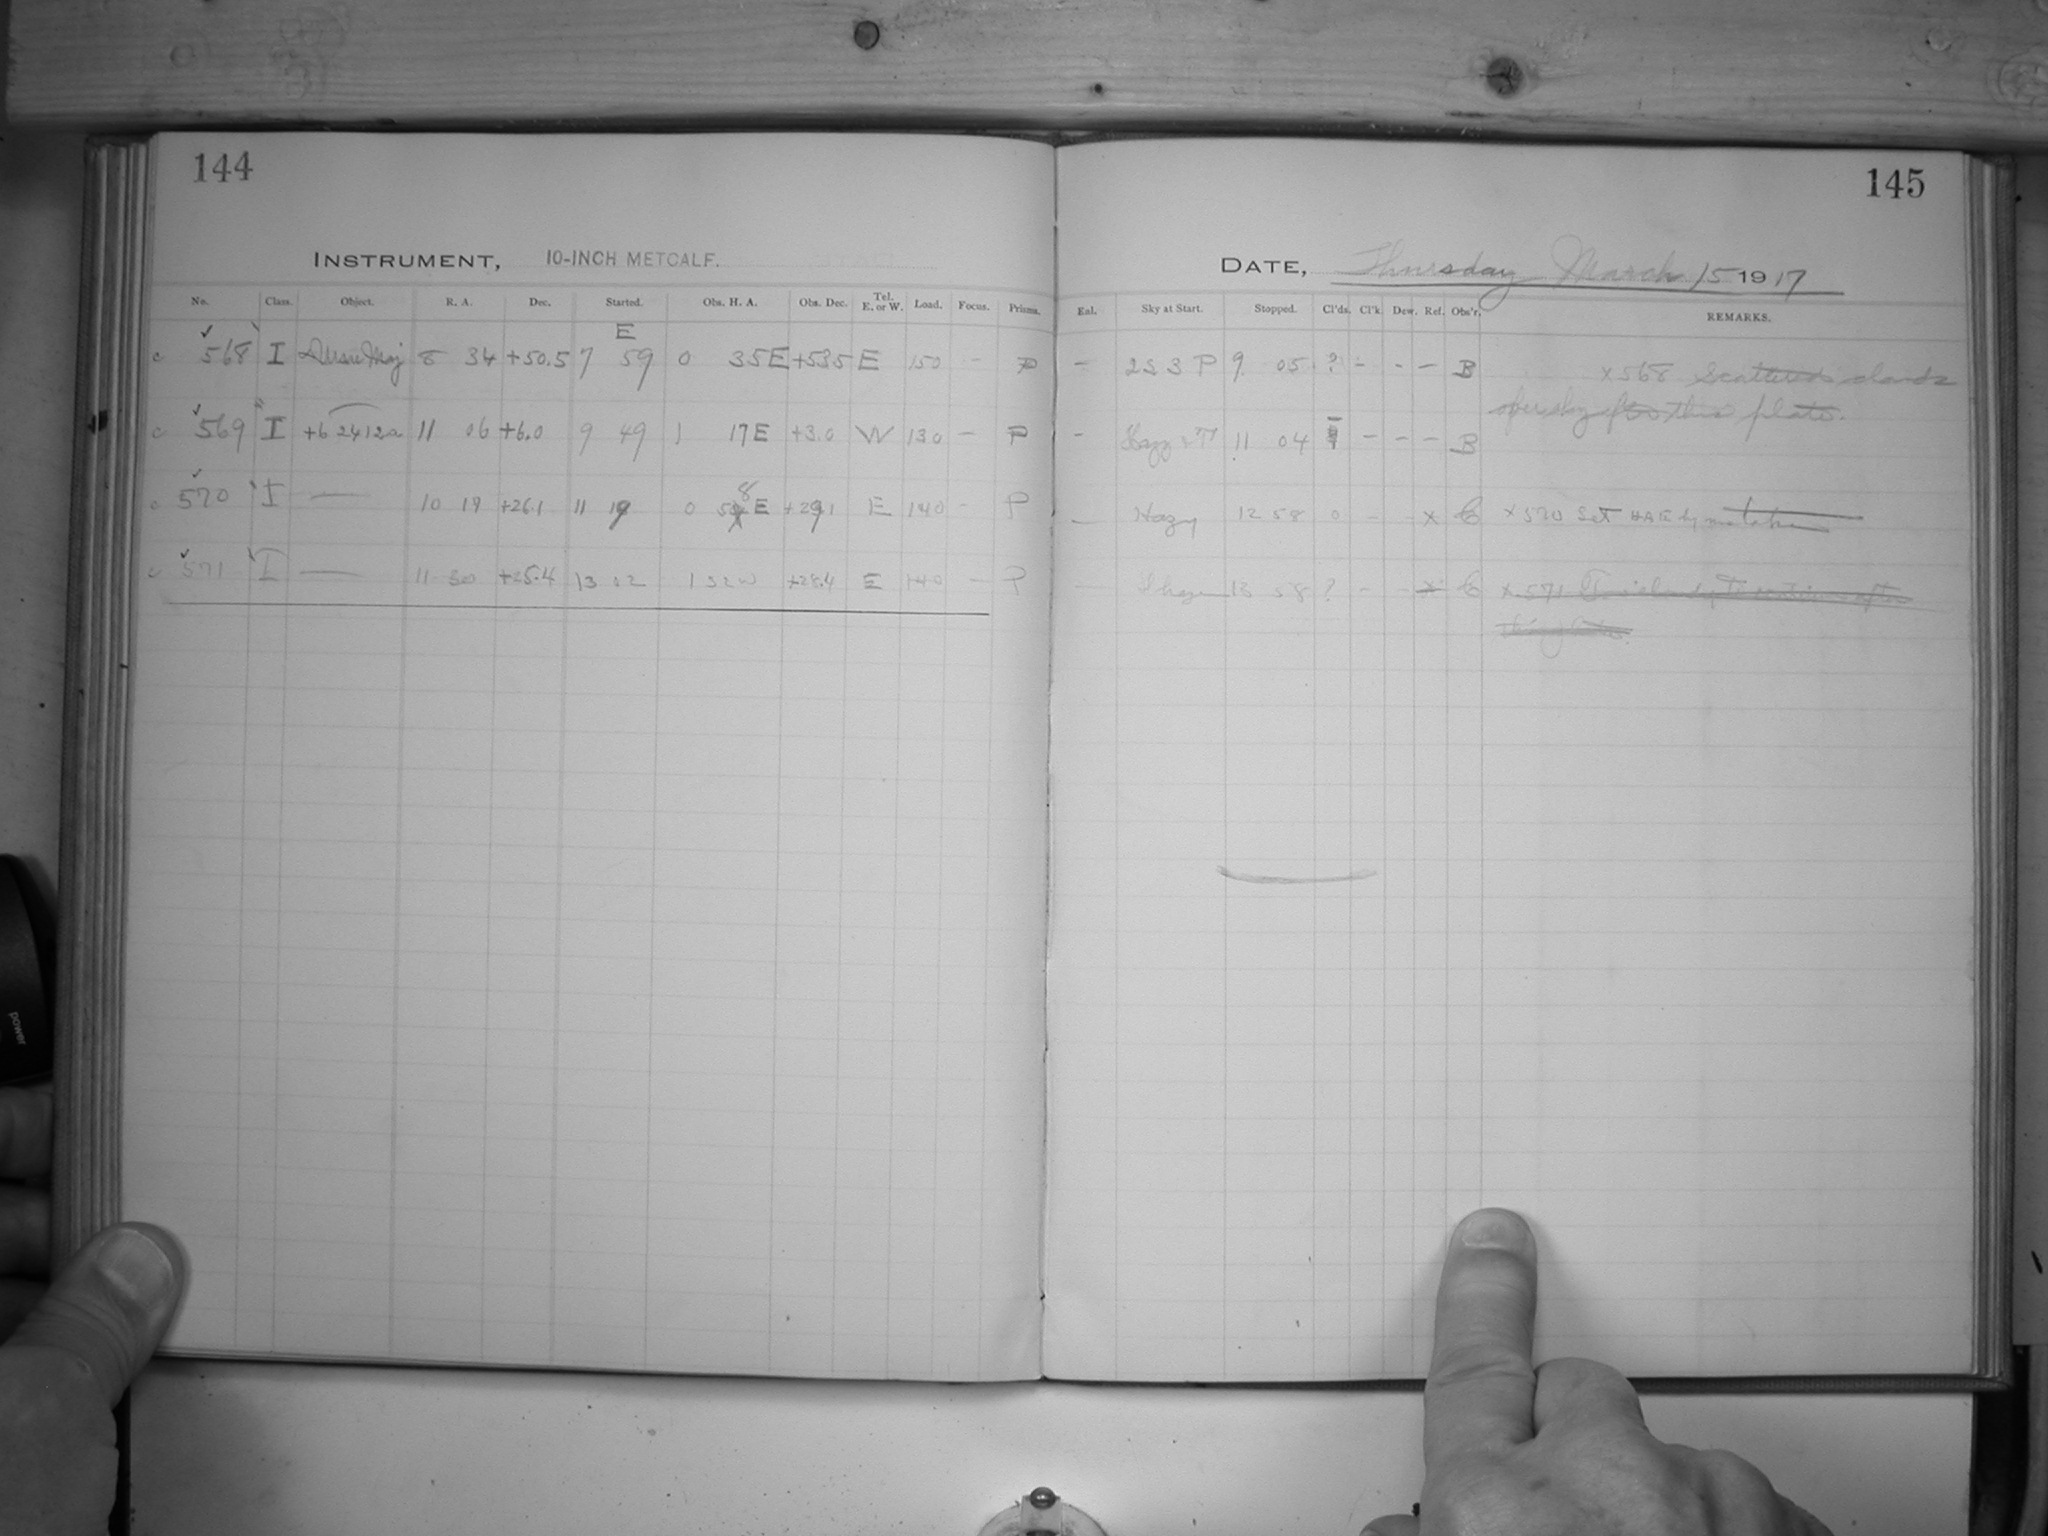 144
145
INSTRUMENT, 10-INCH METCALF.
DATE, Thursday March 15 1917
No. Class. Object. R. A. Dec. Started. Obs. H. A. Obs. Dec. Tel. E. or W. Load. Focus. Prisms. Eal. Sky at Start. Stopped. Cl'ds. Cl'k. Dew. Ref. Obs'r. REMARKS.
E
c 568 I Ursa Maj 8 34 +50.5 7 59 0 35E +53.5 E 150 - P - 2S 3 P 9 05 ? - - - B x568 Scattered clouds
over sky after this plate.
c 569 I +6 2412a 11 06 +6.0 9 49 1 17E +3.0 W 130 - P - Hazy 11 04 - - - B
8
c 570 I — 10 19 +26.1 11 19 0 E +29.1 E 140 - P - Hazy 12 58 0 - - x C x570 Set
c 571 I — 11 30 +25.4 13 02 1 32W +28.4 E 140 - P - 13 58 ? - - x C x571
power